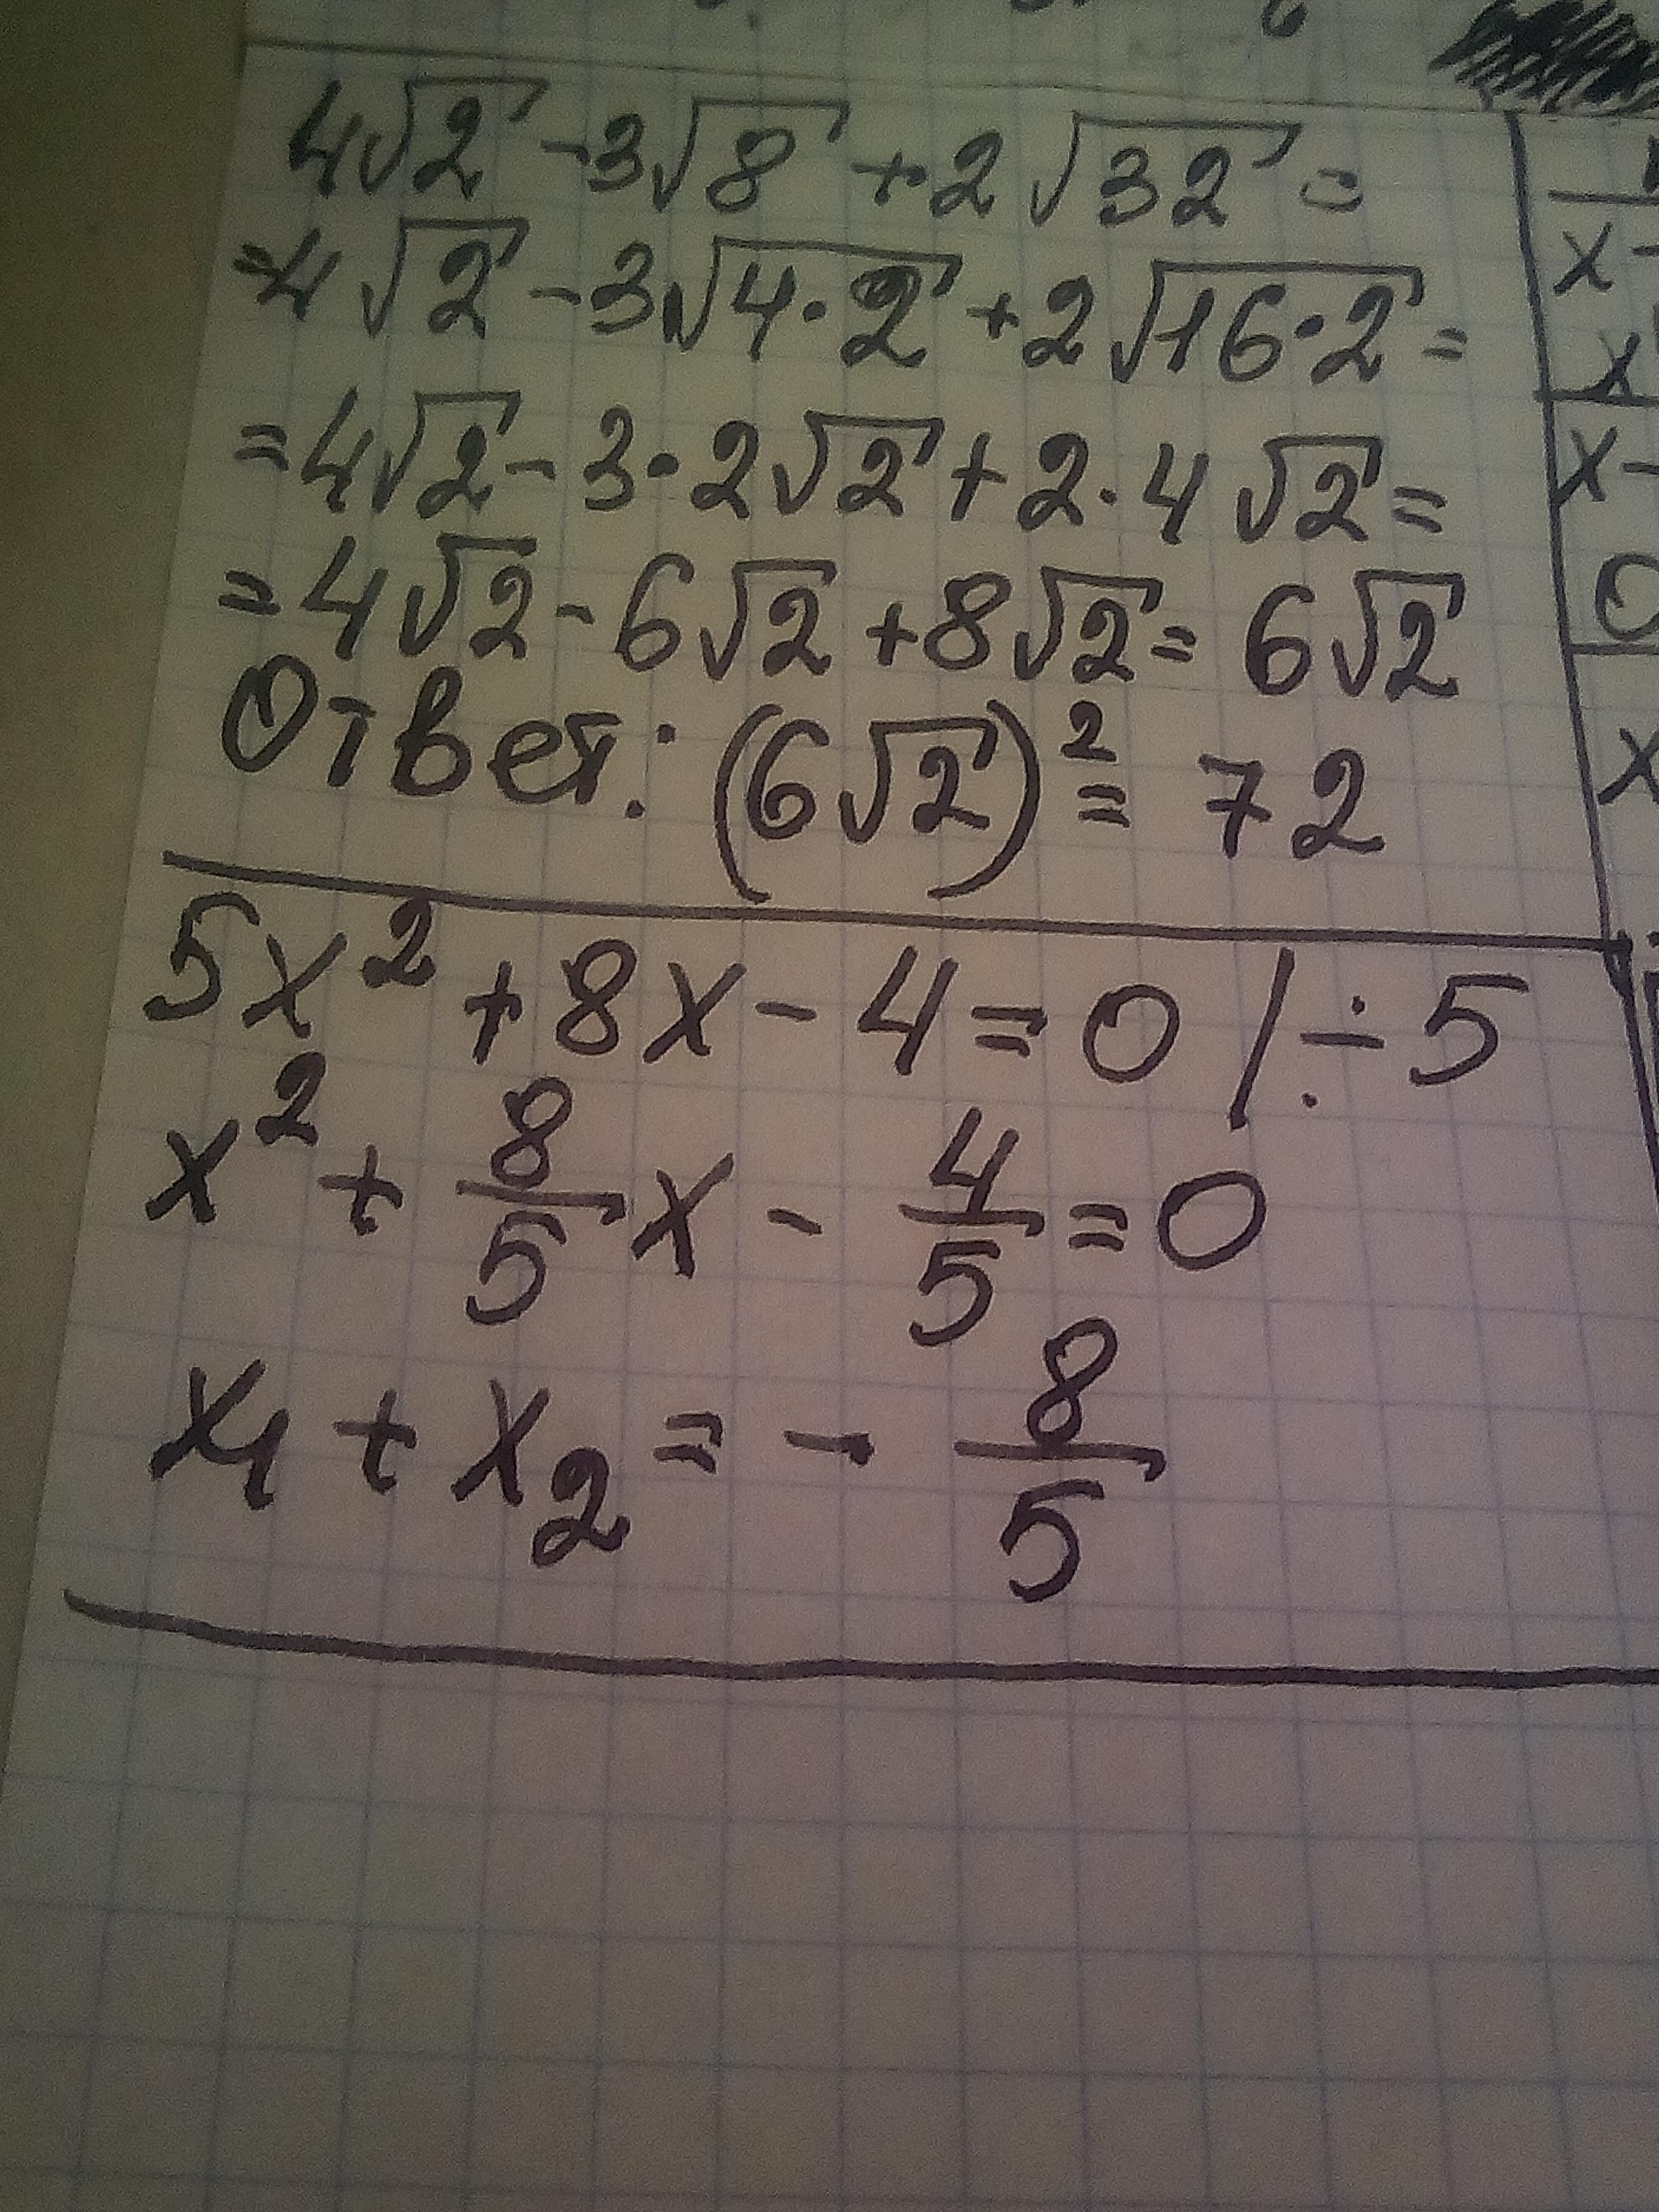 4√2 - 3√8 + 2√32 =
= 4√2 - 3√4·2 + 2√16·2 =
= 4√2 - 3·2√2 + 2·4√2 =
= 4√2 - 6√2 + 8√2 = 6√2
Ответ: (6√2)² = 72
5x² + 8x - 4 = 0 / ÷ 5
x² + 8/5 x - 4/5 = 0
x₁ + x₂ = - 8/5